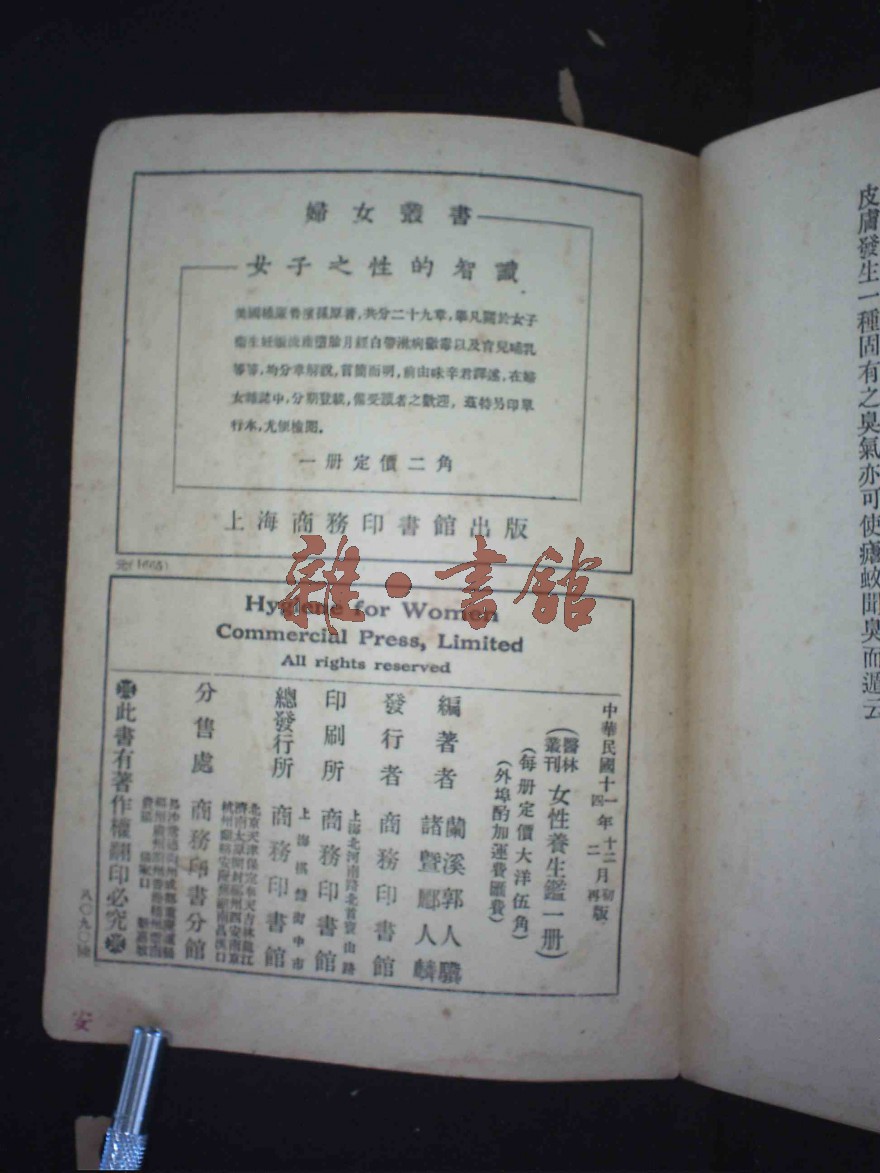 婦女叢書
女子之性的智識
美國 原著,共分二十九章,舉凡關於女子
衞生妊娠流產墮胎月經白帶淋病 毒以及育兒哺乳
等等,均分章解說,言簡而明,前由味辛君譯述,在婦
女雜誌中,分期登載,備受讀者之歡迎,茲特另印單
行本,尤便檢閱。
一册定價二角
上海商務印書館出版
元(1665)
雜·書館
Hygiene for Women
Commercial Press, Limited
All rights reserved
中華民國十一年十二月初版
四 二 再
(醫林叢刊 女性養生鑑一册)
(每册定價大洋伍角)
(外埠酌加運費匯費)
編著者 蘭溪郭人驥
諸暨酈人麟
發行者 商務印書館
上海北河南路北首寶山路
印刷所 商務印書館
上海棋盤街中市
總發行所 商務印書館
北京天津保定奉天吉林龍江
濟南太原開封 西安南京
杭州蘭谿安慶蕪湖南昌漢口
分售處 商務印書分館
長沙常德 成都重慶
福州廣州 香港
此書有著作權翻印必究
八〇九〇
安
皮膚發生一種固有之臭氣亦可使瘧蚊聞臭而遁云